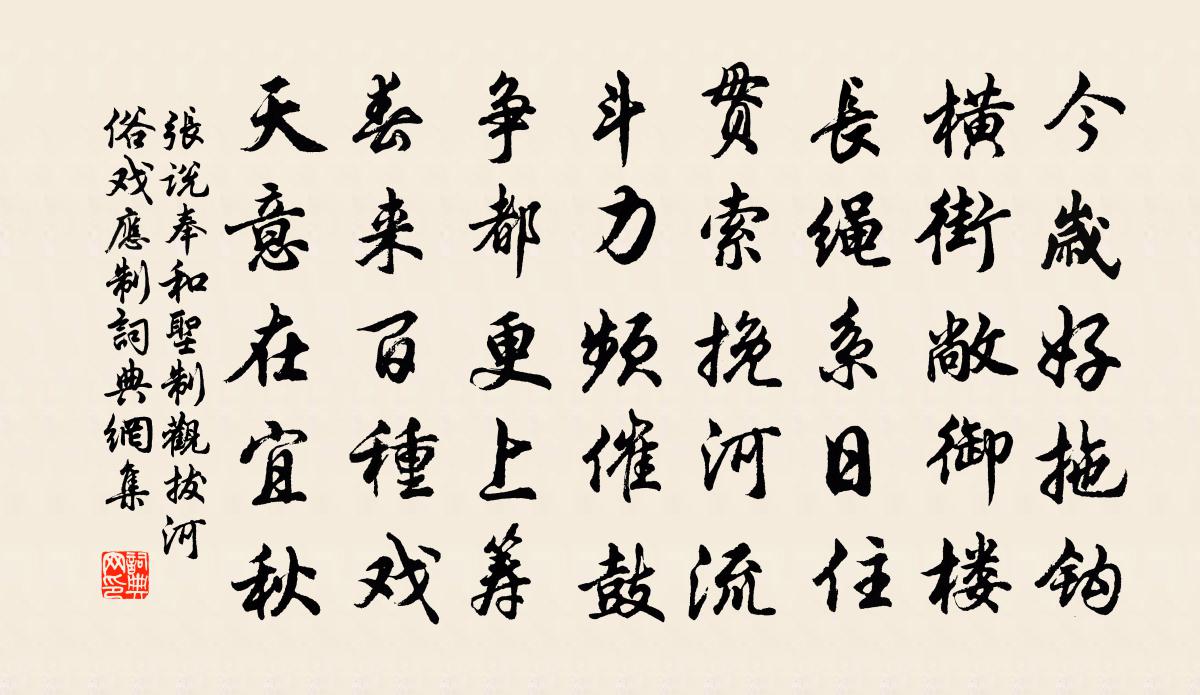 今歲好拖钩
横街敞御楼
長绳系日住
贯索挽河流
斗力频催鼓
争都更上筹
春来百種戏
天意在宜秋
張说奉和聖制觀拔河
俗戏應制詞典網集
詞典
网印